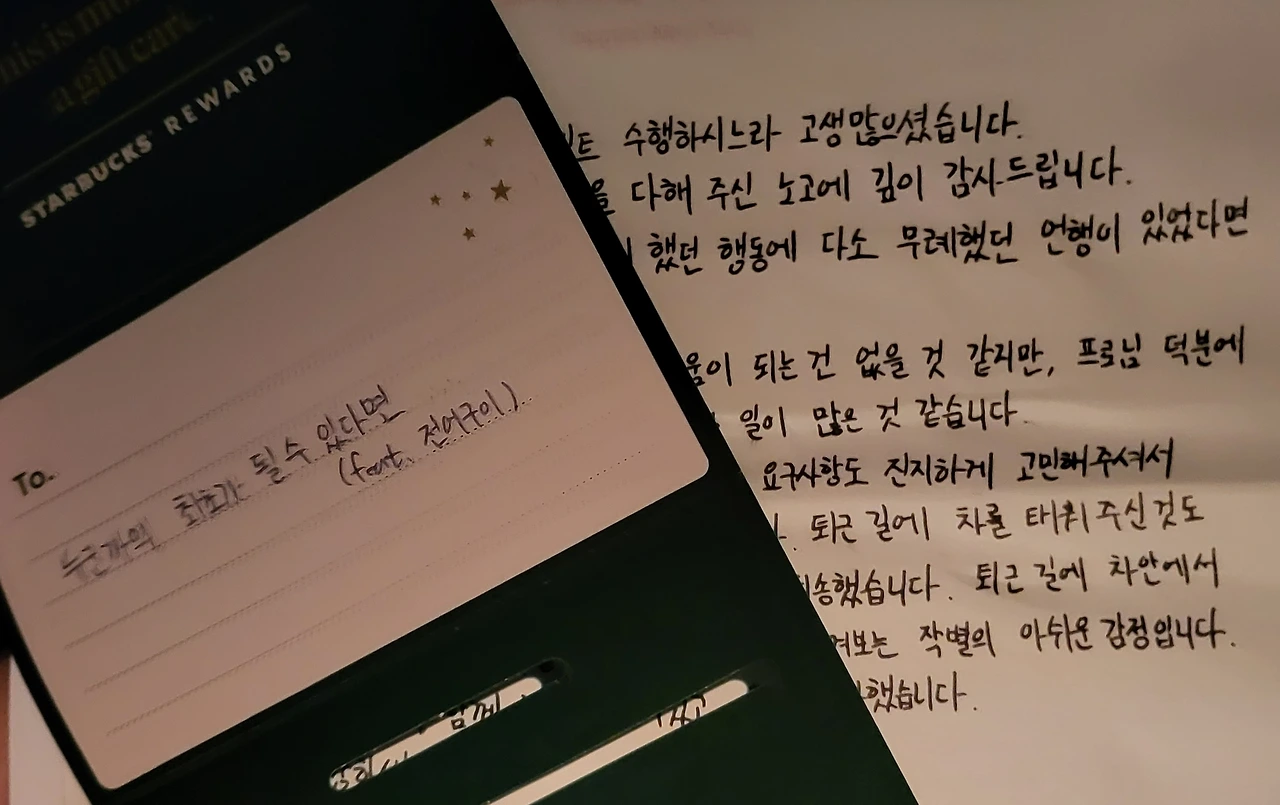 This is more
a gift card.
STARBUCKS REWARDS
To.
누군가의 최초가 될 수 있다면
(feat. 전어구이)
함께
트 수행하시느라 고생많으셨습니다.
을 다해 주신 노고에 깊이 감사드립니다.
했던 행동에 다소 무례했던 언행이 있었다면
움이 되는건 없을 것 같지만, 프로님 덕분에
일이 많은 것 같습니다.
요구사항도 진지하게 고민해주셔서
퇴근길에 차를 태워주신것도
송했습니다. 퇴근길에 차안에서
겨보는 작별의 아쉬운 감정입니다.
했습니다.